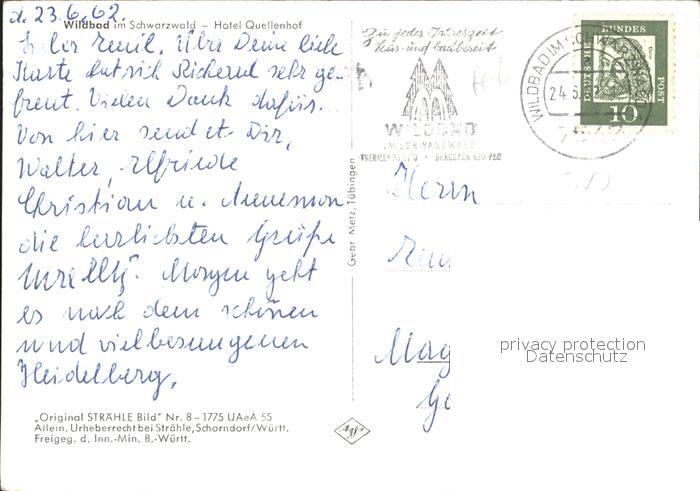 d. 23.6.62.
Wildbad im Schwarzwald – Hotel Quellenhof
Lieber Emil. Über Deine liebe
Karte hat sich Richard sehr ge-
freut. Vielen Dank dafür.
Von hier sendet Dir,
Walter, Elfriede
Christian u. Annemon
die herzlichsten Grüße
Morgen geht
es nach dem schönen
und vielbesungenen
Heidelberg.
„Original STRÄHLE Bild" Nr. 8–1775 UAeA 55
Allein. Urheberrecht bei Strähle, Schorndorf/Württ.
Freigeg. d. Inn.-Min. B.-Württ.
Gebr. Metz, Tübingen
Agfa
Zu jeder Jahreszeit
kur- und badbereit
WILDBAD
IM SCHWARZWALD
WILDBAD IM SCHWARZWALD
24.6.62
DEUTSCHE BUNDESPOST
10
Herrn
Mag
Ge
privacy protection
Datenschutz